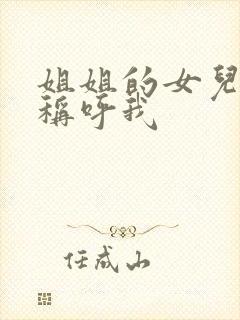 姐姐的女兒
稱呼我
任成山